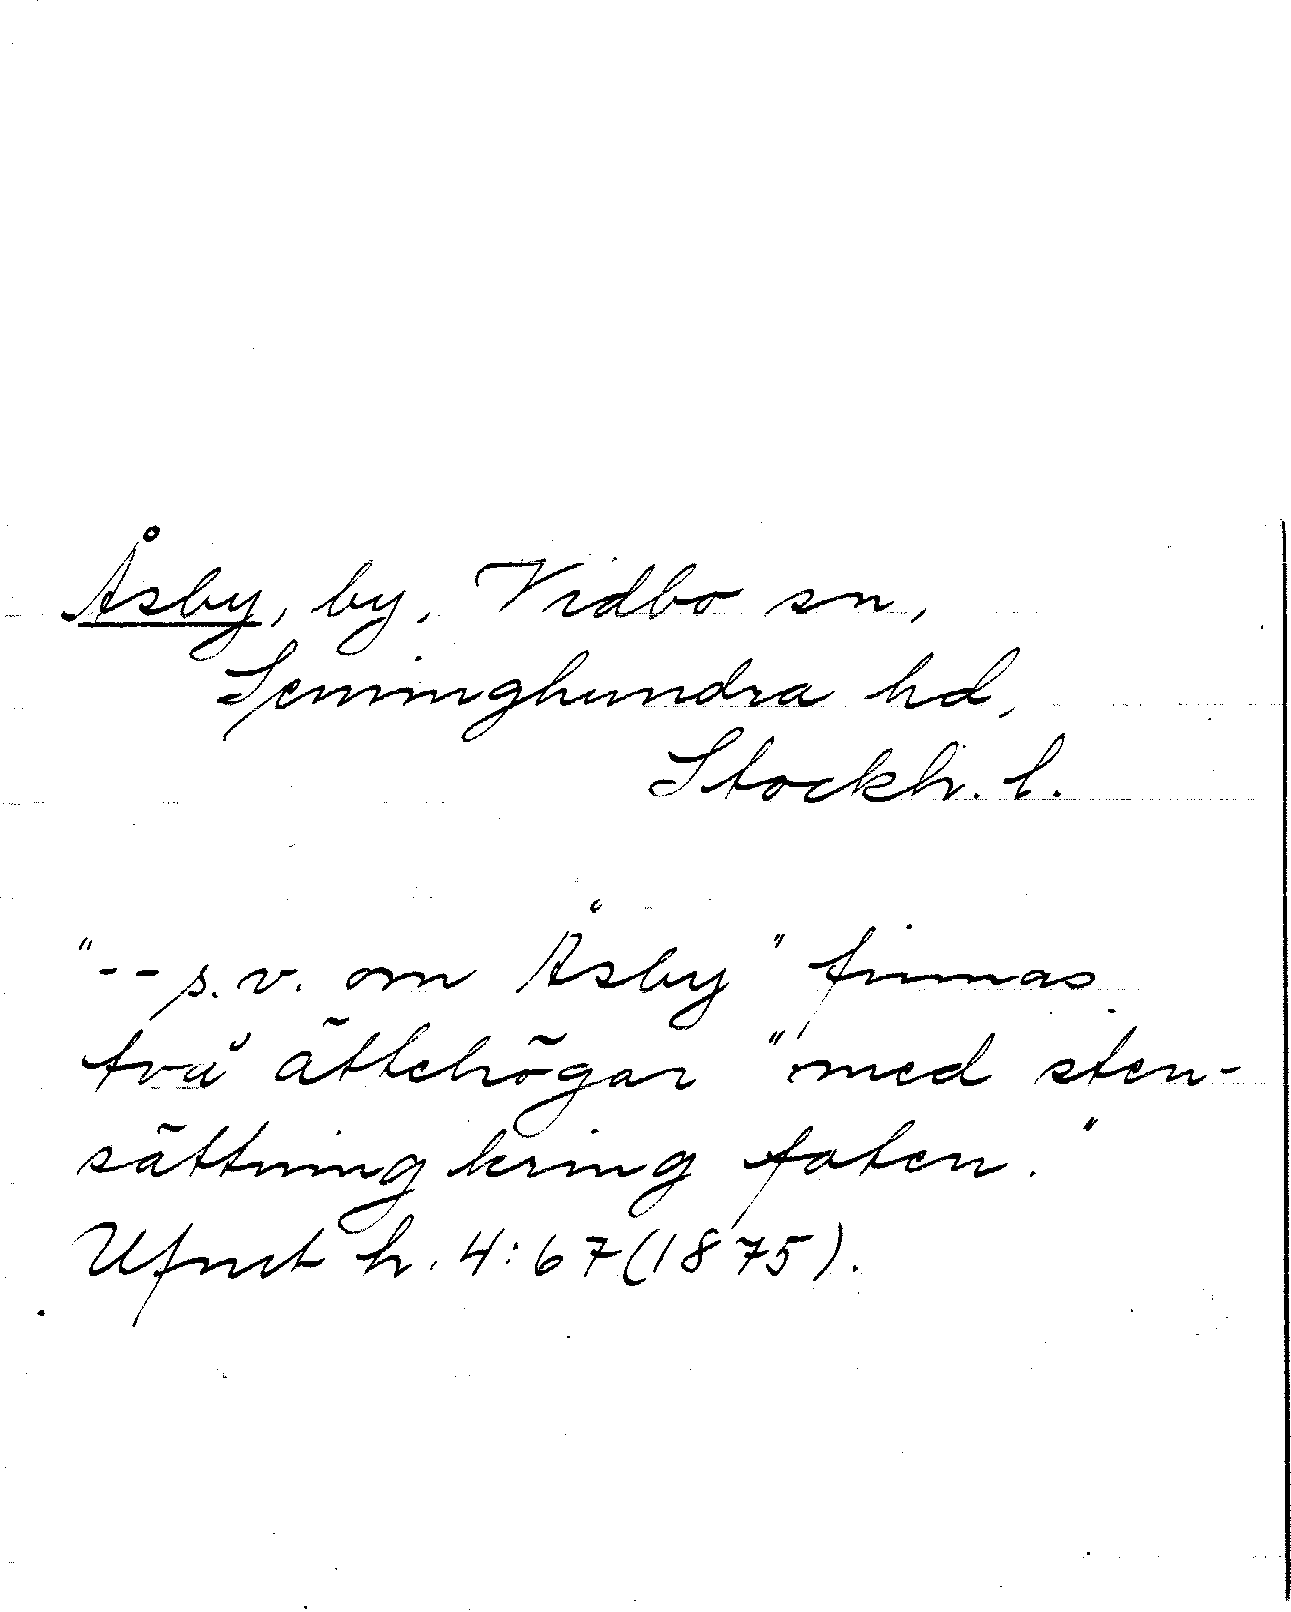 Åsby, by, Vidbo sn,
Seminghundra hd,
Stockh. l.
"-- s.v. om Åsby" finnas
två ättehögar "med sten-
sättning kring foten."
Ufmt h. 4:67 (1875).